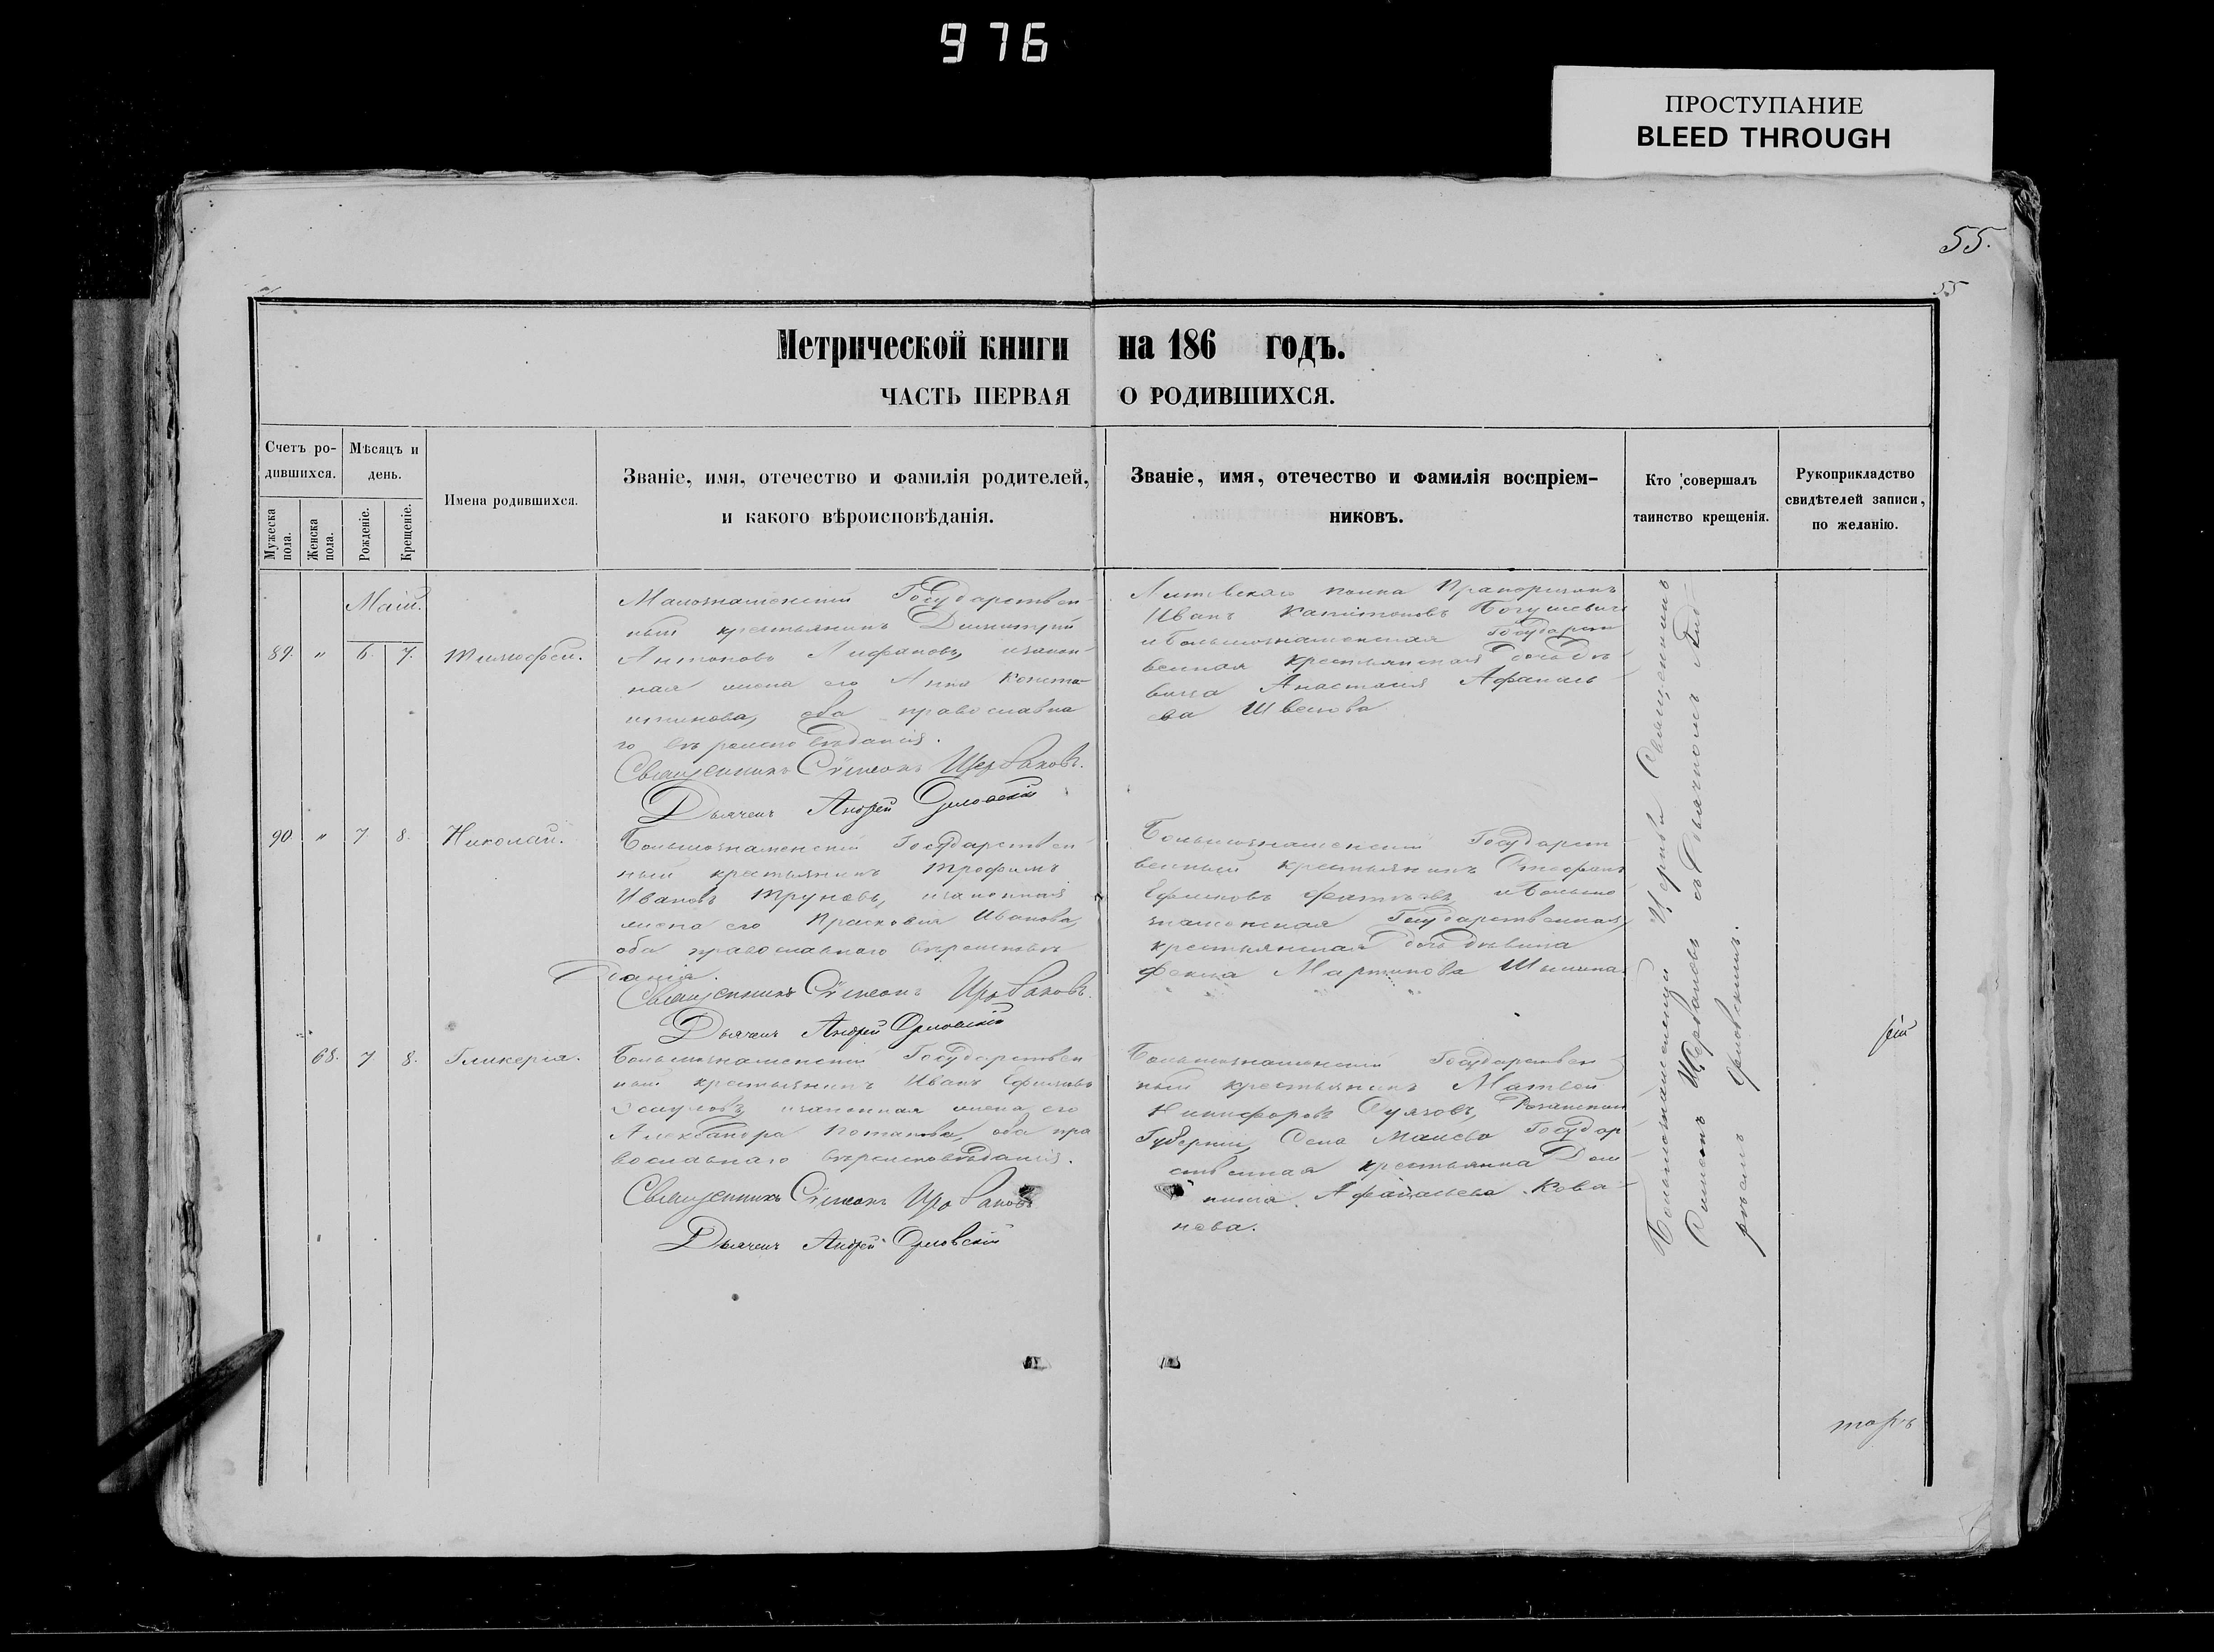 976
ПРОСТУПАНИЕ
BLEED THROUGH
55.
55
Метрической книги на 186 годъ.
ЧАСТЬ ПЕРВАЯ О РОДИВШИХСЯ.
Счетъ ро-
дившихся.
Мужеска
пола.
Женска
пола.
Мѣсяцъ и
день.
Рожденіе.
Крещеніе.
Имена родившихся.
Званіе, имя, отечество и фамилія родителей,
и какого вѣроисповѣданія.
Званіе, имя, отечество и фамилія воспріем-
никовъ.
Кто совершалъ
таинство крещенія.
Рукоприкладство
свидѣтелей записи,
по желанію.
Маій.
89. " 6. 7. Тимофей.
Малознаменскій Государствен-
ный крестьянинъ Димитрій
Антоновъ Лифановъ, изакон-
ная жена его Анна Конста-
нтинова, оба православна
го вѣроисповѣданія.
Священникъ Сѵмеонъ Щербаковъ.
Дьячекъ Андрей Орловскій
Литовскаго полка Прапорщикъ
Иванъ Капитоновъ Богушевичъ
и Большознаменская Государст
венная крестьянская дочь дѣ
вица Анастасія Афанась
ева Швецова
90 " 7 8. Николай.
Большознаменскій Государствен-
ный крестьянинъ Трофимъ
Ивановъ Труновъ, изаконная
жена его Прасковья Иванова,
оба православнаго вѣроисповѣ
данія.
Священникъ Сѵмеонъ Щербаковъ.
Дьячекъ Андрей Орловскій
Большознаменскій Государст
венный крестьянинъ Стефанъ
Ефимовъ и Больше
знаменская Государственная
крестьянская дочь дѣвица
Мартинова
68. 7 8. Гликерія.
Большознаменскій Государствен
ный крестьянинъ Иванъ Ефимовъ
изаконная жена его
Александра Потапова, оба пра
вославнаго вѣроисповѣданія.
Священникъ Сѵмеонъ Щербаковъ
Дьячекъ Андрей Орловскій
Большознаменскій Государствен
ный крестьянинъ Матвей
Никифоровъ
Губерніи, Села Государ
ственная крестьянка Дом
никія Афанасьева Кова
нова.
Большознаменской Церкви Священникъ
Симеонъ Щербаковъ съ Дьячкомъ Анд
реемъ Орловскимъ.